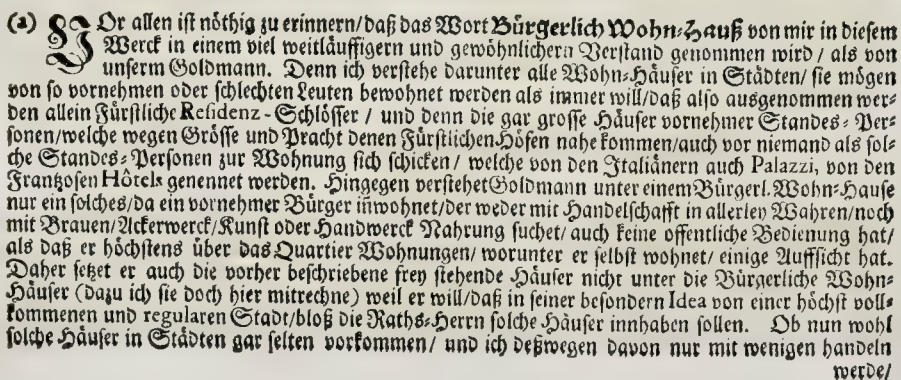 (a) VOr allen ist nöthig zu erinnern/daß das Wort Bürgerlich Wohn-Hauß von mir in diesem
Werck in einem viel weitläuffigern und gewöhnlichern Verstand genommen wird / als von
unserm Goldmann. Denn ich verstehe darunter alle Wohn-Häuser in Städten/ sie mögen
von so vornehmen oder schlechten Leuten bewohnet werden als immer will/daß also ausgenommen wer-
den allein Fürstliche Residenz-Schlösser / und denn die gar grosse Häuser vornehmer Standes-Per-
sonen/welche wegen Grösse und Pracht denen Fürstlichen Höfen nahe kommen/auch vor niemand als sol-
che Standes-Personen zur Wohnung sich schicken / welche von den Italiänern auch Palazzi, von den
Frantzosen Hôtels genennet werden. Hingegen verstehet Goldmann unter einem Bürgerl. Wohn-Hause
nur ein solches/da ein vornehmer Bürger inwohnet/der weder mit Handelschafft in allerley Wahren/noch
mit Brauen/Ackerwerck/Kunst oder Handwerck Nahrung suchet/ auch keine offentliche Bedienung hat/
als daß er höchstens über das Quartier Wohnungen/ worunter er selbst wohnet/ einige Aufficht hat.
Daher setzet er auch die vorher beschriebene frey stehende Häuser nicht unter die Bürgerliche Wohn-
Häuser (dazu ich sie doch hier mitrechne) weil er will/daß in seiner besondern Idea von einer höchst voll-
kommenen und regularen Stadt/bloß die Raths-Herrn solche Häuser innhaben sollen. Ob nun wohl
solche Häuser in Städten gar selten vorkommen/ und ich deßwegen davon nur mit wenigen handeln
werde/